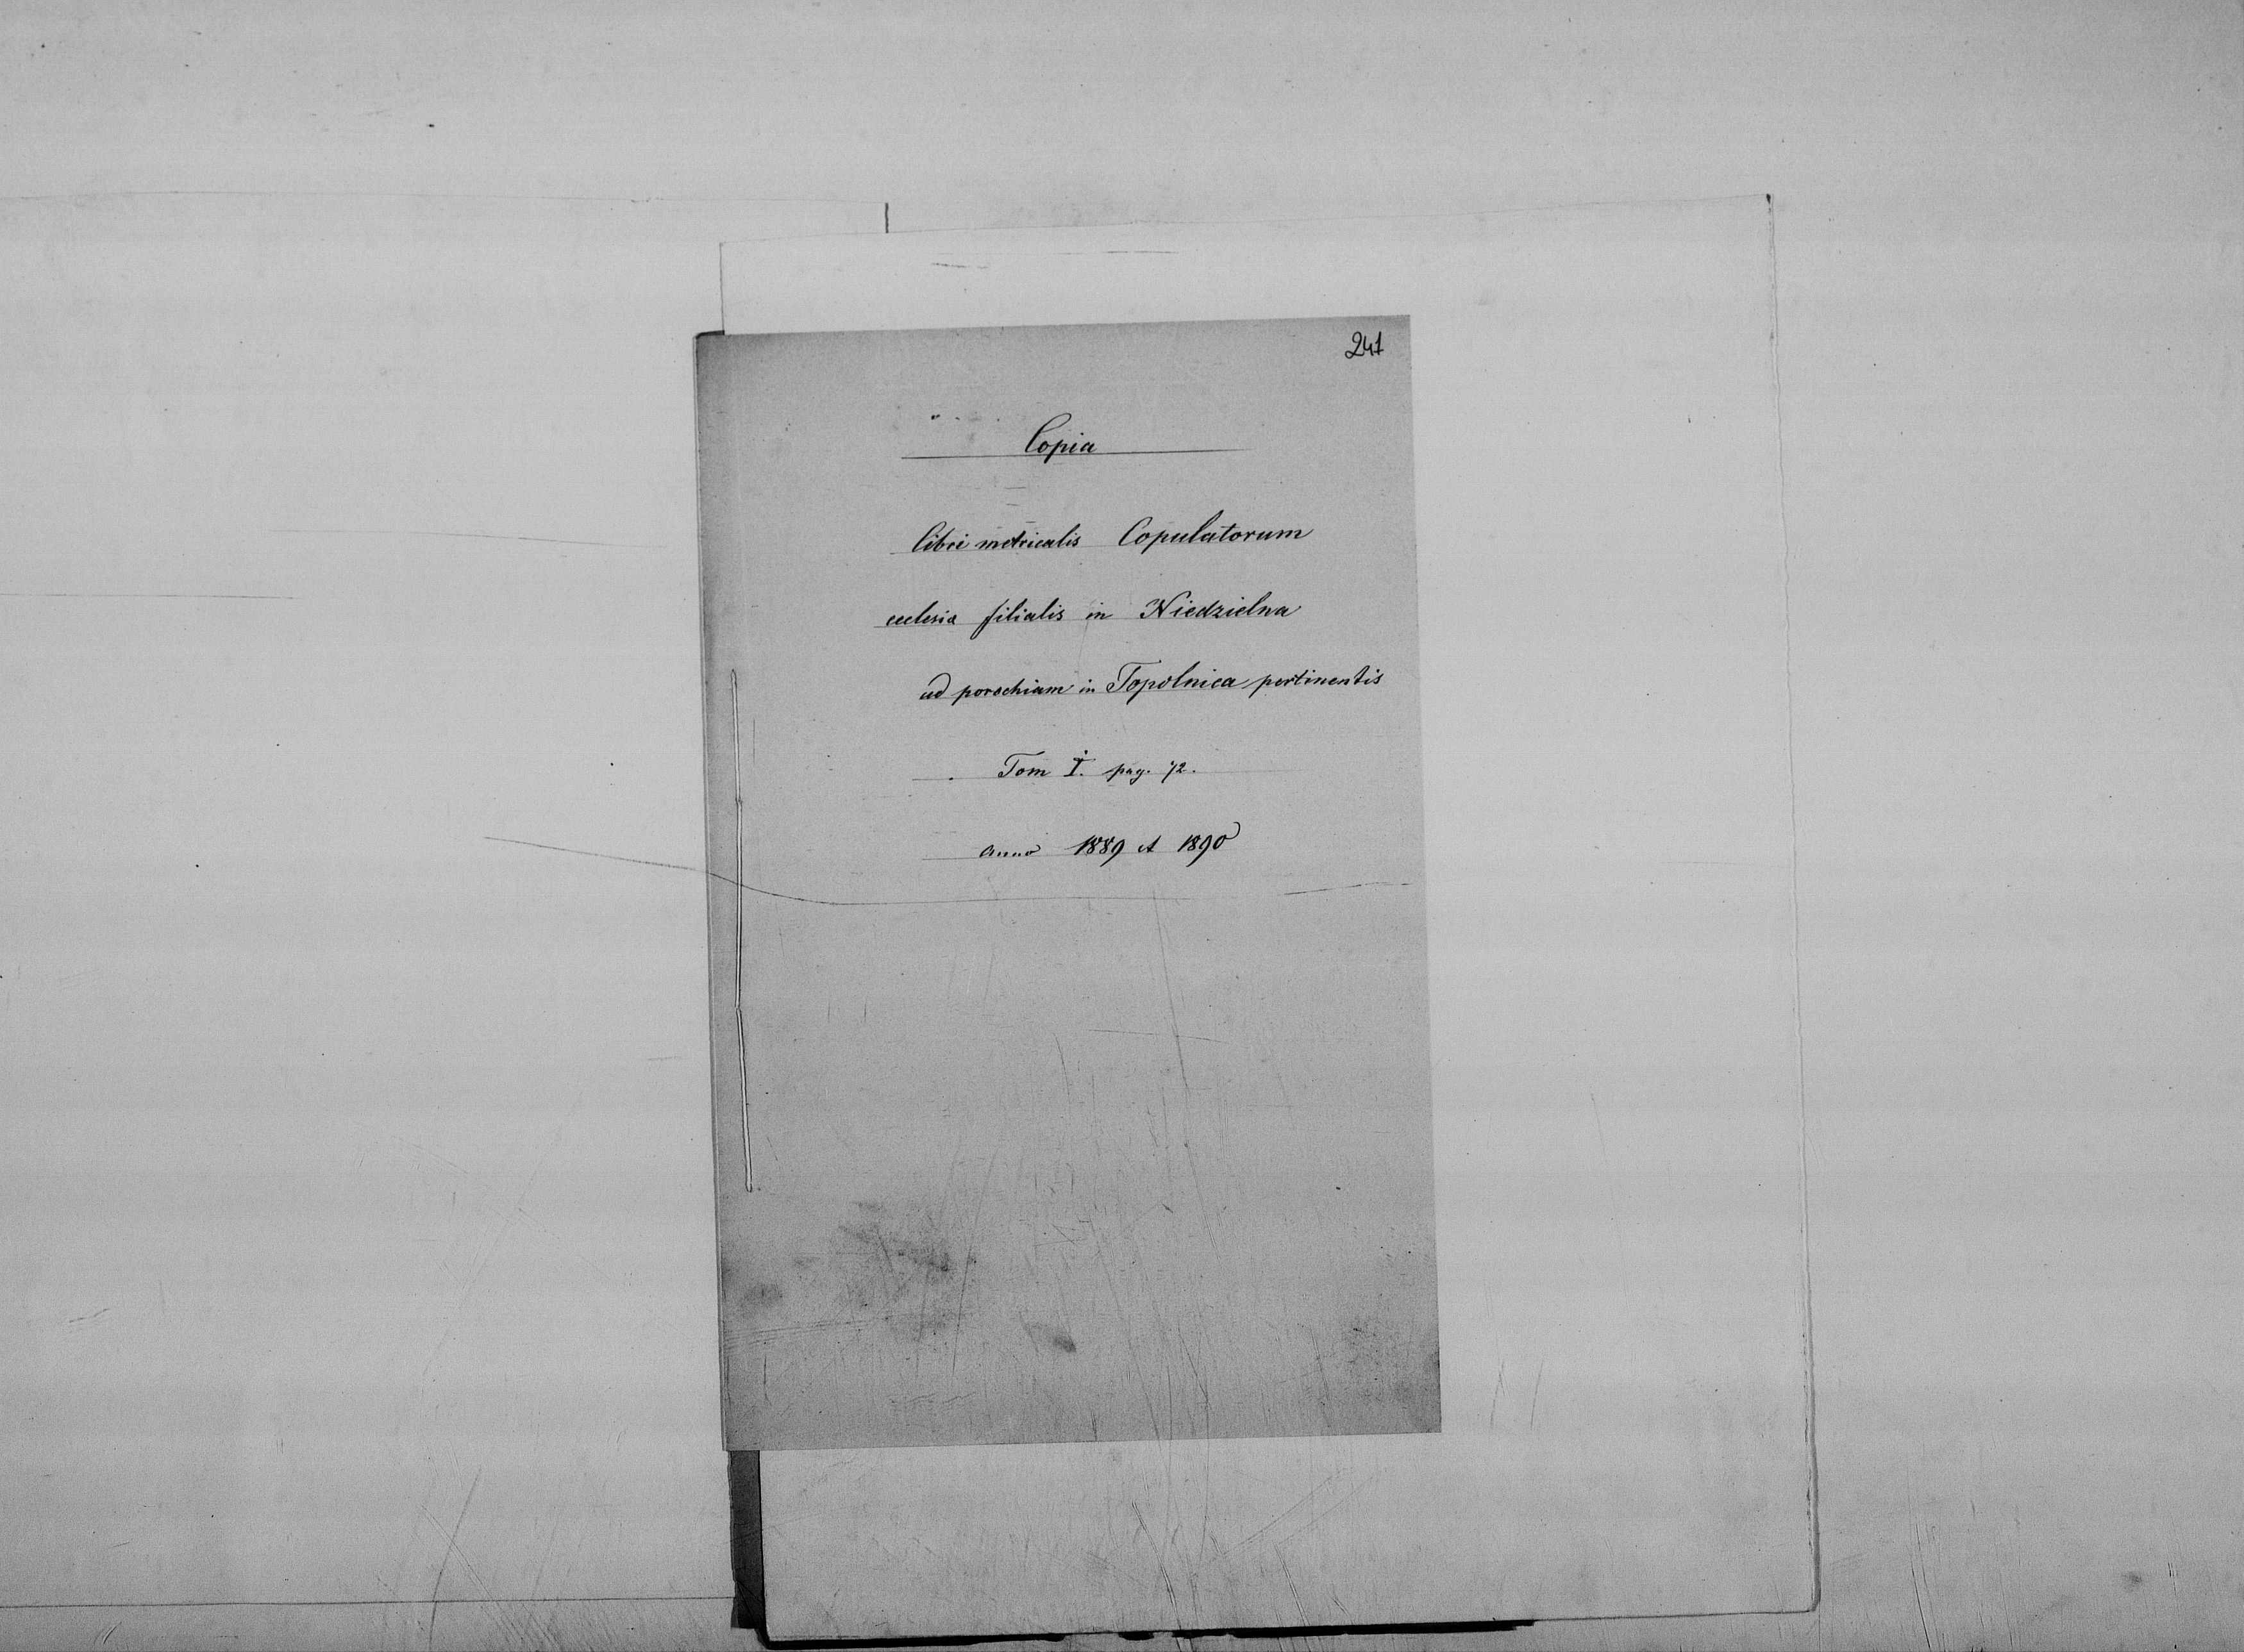 241
Copia
libri metricalis Copulatorum
ecclesia filialis in Niedzielna
ad parochiam in Topolnica pertinentis
Tom I. pag. 72.
Anno 1889 et 1890